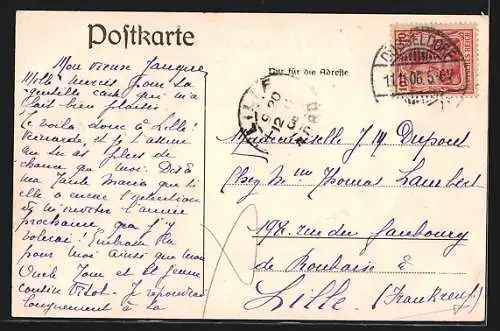 Postkarte
Nur für die Adresse
DÜSSELDORF
11.1.06.5-6N
LILLE
NORD
Mon vieux Jacques
Mille mercis pour la
gentille carte qui m'a
fait bien plaisir
Te voilà donc à Lille!
Veinarde, et je t'assure
que tu as plus de
chance que moi. Dis à
ma Tante Maria que si
elle a encore l'intention
de m'inviter l'année
prochaine, que j'y
volerai! Embrasse la
pour moi ainsi que mon
Oncle Tom et le jeune
cousin. Je répondrai
longuement à ta
Mademoiselle J M Dupont
Chez Mme Thomas Lambert
192. rue du faubourg
de Roubaix
Lille (Frankreich)